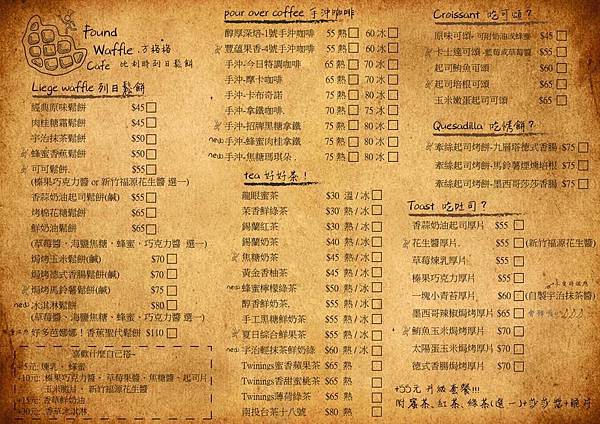 Found
Waffle.方格格
Cafe 比利時列日鬆餅
Liege waffle 列日鬆餅
經典原味鬆餅 $45
肉桂糖霜鬆餅 $45
宇治抹茶鬆餅 $50
蜂蜜香蕉鬆餅 $50
可可鬆餅 $55
(榛果巧克力醬 or 新竹福源花生醬 選一)
香蒜奶油起司鬆餅(鹹) $55
烤棉花糖鬆餅 $65
鮮奶油鬆餅 $65
(草莓醬、海鹽焦糖、蜂蜜、巧克力醬 選一)
焗烤玉米鬆餅(鹹) $70
焗烤德式香腸鬆餅(鹹) $70
焗烤馬鈴薯鬆餅(鹹) $75
new 冰淇淋鬆餅 $80
(草莓醬、海鹽焦糖、蜂蜜、巧克力醬 選一)
好多芭娜娜！香蕉聖代鬆餅 $110
喜歡什麼自己搭~
+5元: 煉乳、蜂蜜
+10元: 榛果巧克力醬、草莓果醬、焦糖醬、起司片
玉米脆片、新竹福源花生醬
+15元: 香草鮮奶油
+30元: 香草冰淇淋
pour over coffee 手沖咖啡
醇厚深焙-1號手沖咖啡 55 熱 60 冰
豐蘊果香-4號手沖咖啡 55 熱 60 冰
手沖-今日特調咖啡 65 熱
手沖-摩卡咖啡 65 熱
手沖-卡布奇諾 75 熱 80 冰
手沖-拿鐵咖啡 70 熱 75 冰
new 手沖-招牌黑糖拿鐵 75 熱 80 冰
手沖-蜂蜜肉桂拿鐵 75 熱 80 冰
new 手沖-焦糖瑪琪朵 75 熱 80 冰
tea 好好茶！
龍眼蜜茶 $30 溫 / 冰
茉香鮮綠茶 $30 熱 / 冰
錫蘭紅茶 $30 熱 / 冰
錫蘭奶茶 $40 熱 / 冰
焦糖奶茶 $45 熱 / 冰
黃金香柚茶 $45 熱 / 冰
new 蜂蜜檸檬綠茶 $50 熱 / 冰
醇香鮮奶茶 $50 熱 / 冰
手工黑糖鮮奶茶 $55 熱 / 冰
夏日綜合鮮果茶 $55 熱 / 冰
new 宇治輕抹茶鮮奶綠 $60 熱 / 冰
Twinings蜜香蘋果茶 $65 熱
Twinings香甜蜜桃茶 $65 熱
Twinings薄荷綠茶 $65 熱
南投台茶十八號 $80 熱
Croissant 吃可頌？
原味可頌-可附奶油或蜂蜜 $45
卡士達可頌-藍莓或草莓醬 $55
起司鮪魚可頌 $60
起司燻雞可頌 $65
玉米嫩蛋起司可頌 $65
Quesadilla 吃烤餅？
牽絲起司烤餅-九層塔德式香腸 $75
牽絲起司烤餅-馬鈴薯煙燻培根 $75
牽絲起司烤餅-墨西哥莎莎香腸 $75
Toast 吃吐司？
香蒜奶油起司厚片 $55
花生醬厚片 $55 (新竹福源花生醬)
草莓煉乳厚片 $55
榛果巧克力厚片 $55
一塊小青苔厚片 $60 (自製宇治抹茶醬)
墨西哥辣椒焗烤厚片 $65
鮪魚玉米焗烤厚片 $70
太陽蛋玉米焗烤厚片 $70
德式香腸焗烤厚片 $70
+55元 升級套餐!!!
附 蜜茶、紅茶、綠茶(選一)+莎莎醬+脆片